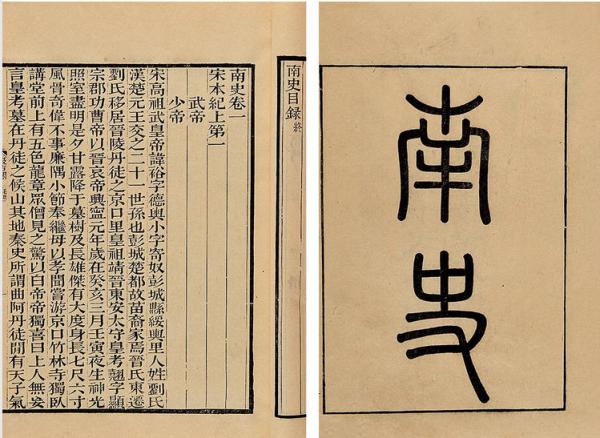 南史
南史目録終
南史卷一
宋本紀上第一
武帝
少帝
宋高祖武皇帝諱裕字德輿小字寄奴彭城縣綏輿里人姓劉氏
漢楚元王交之二十一世孫也彭城楚都故苗裔家焉晉氏東遷
劉氏移居晉陵丹徒之京口里皇祖靖晉東安太守皇考翹字顯
宗郡功曹帝以晉哀帝興寧元年歲在癸亥三月壬寅夜生神光
照室盡明是夕甘露降于墓樹及長雄傑有大度身長七尺六寸
風骨奇偉不事廉隅小節奉繼母以孝聞嘗游京口竹林寺獨臥
講堂前上有五色龍章眾僧見之驚以白帝帝獨喜曰上人無妄
言皇考墓在丹徒之候山其地秦史所謂曲阿丹徒間有天子氣